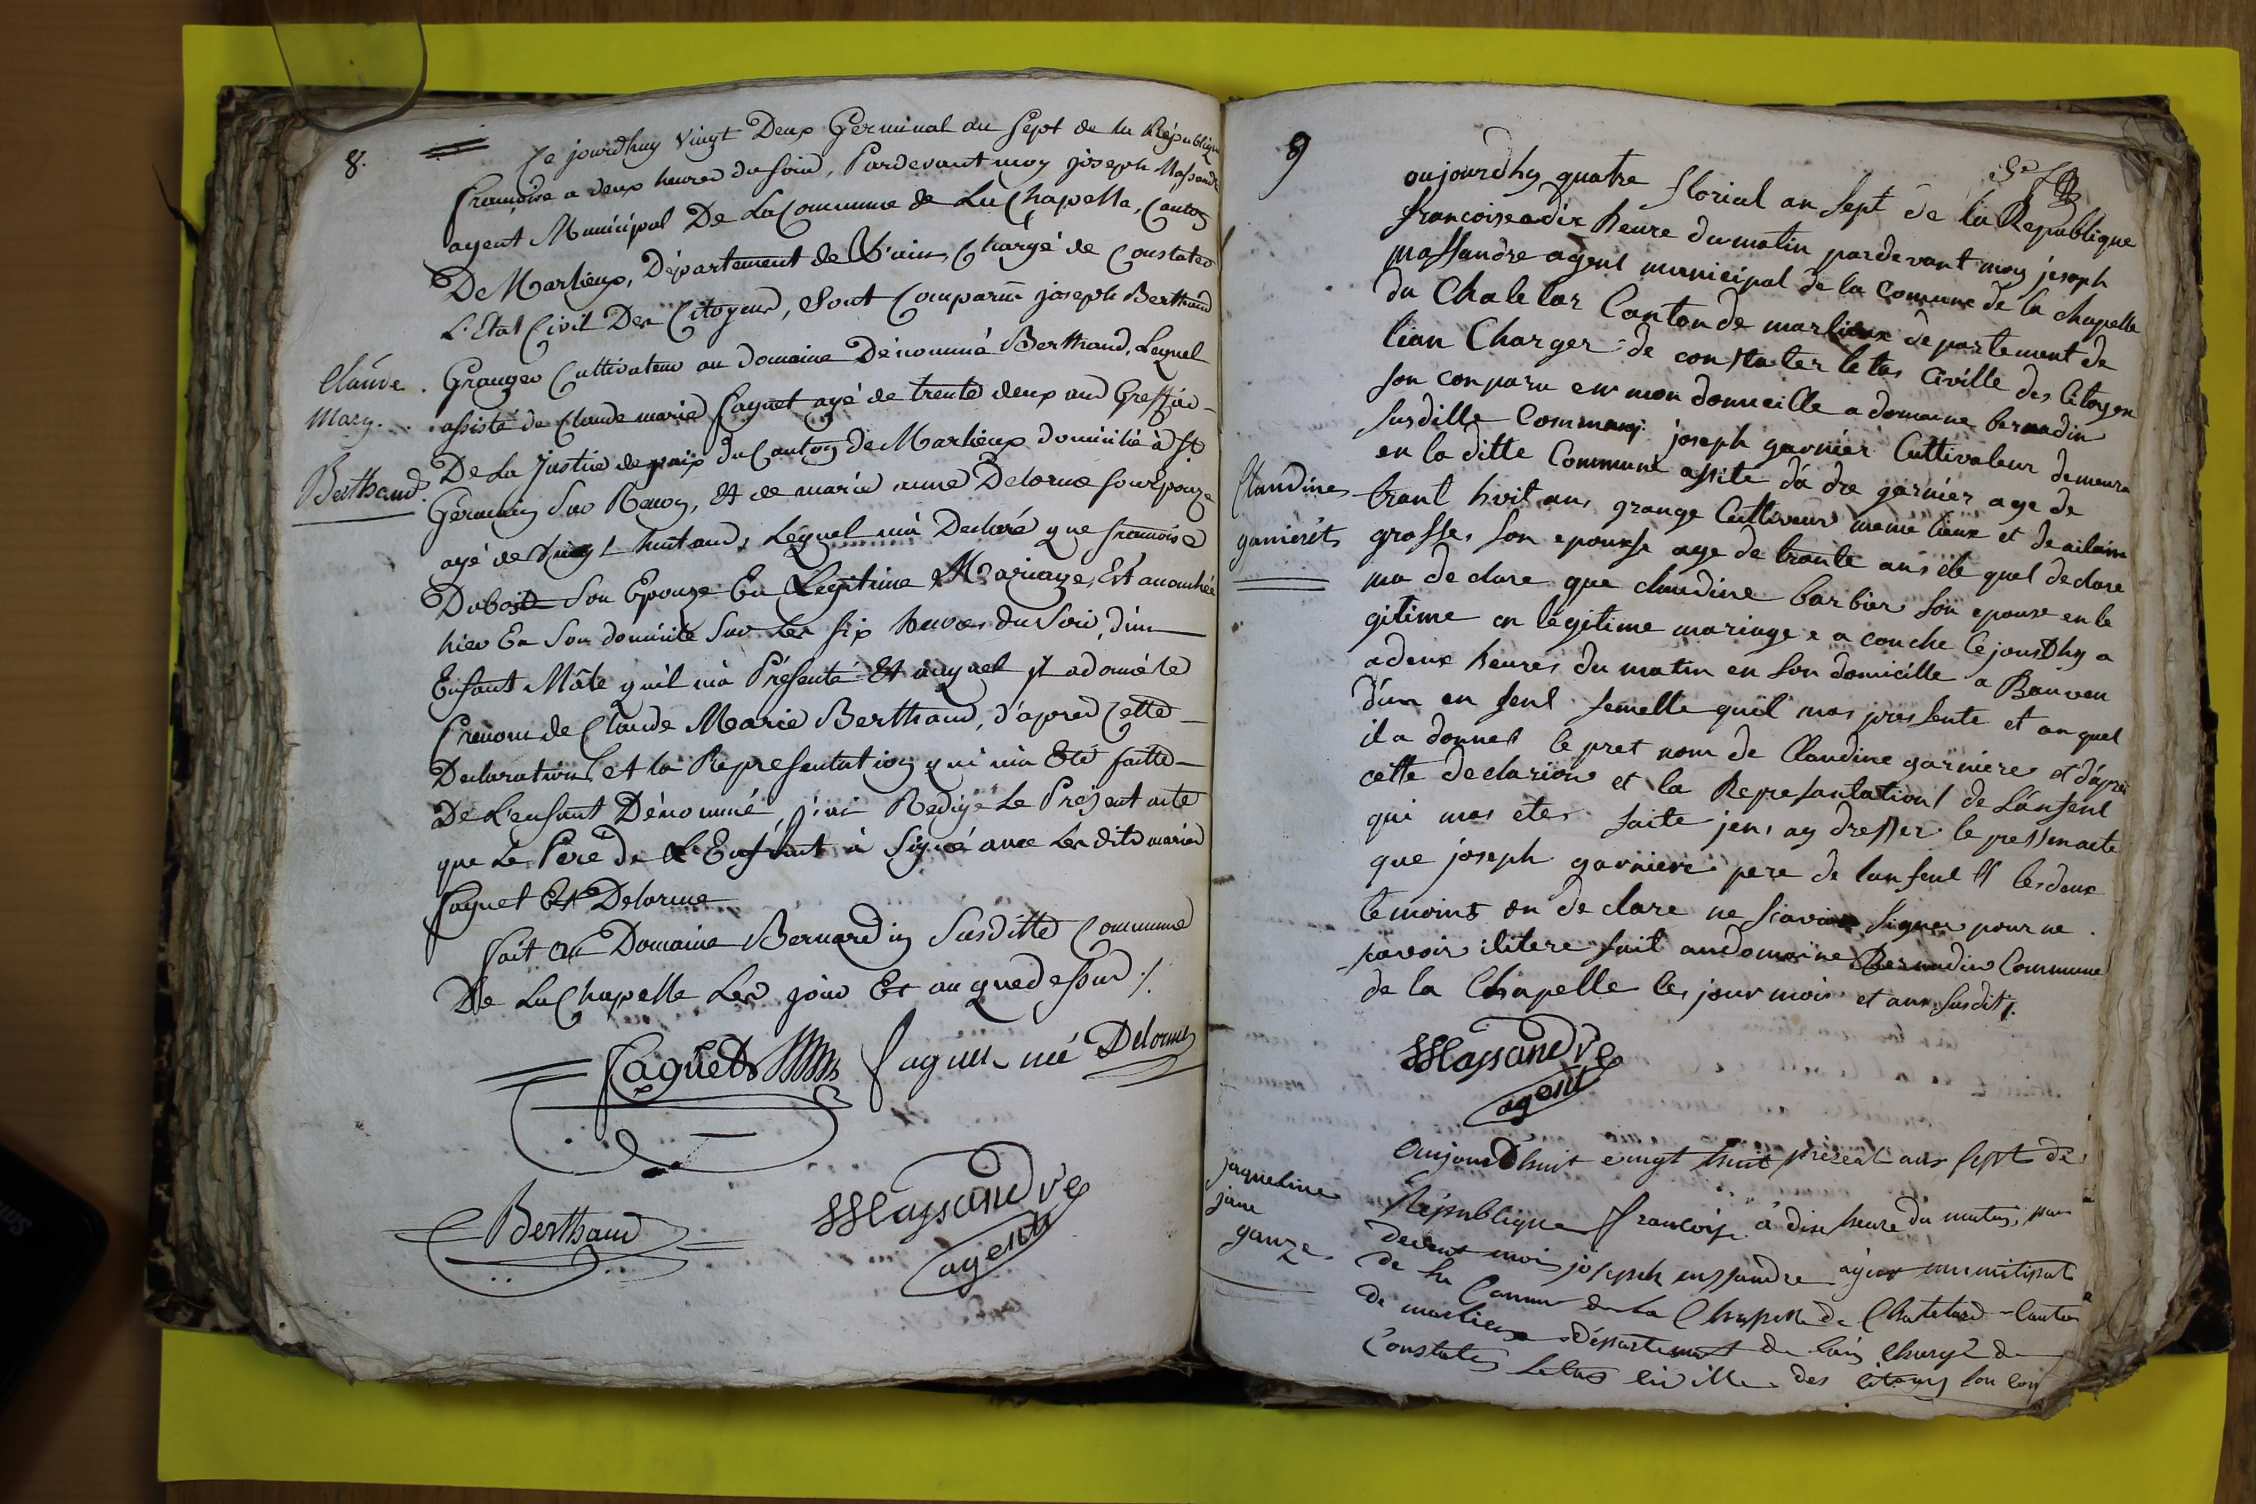 8.
Ce jourdhuy Vingt Deux Germinal an Sept de la République
francoise a deux heures du soir, Pardevant moy joseph Massandre
agent Municipal De La Commune de La Chapelle, Canton
De Marlieux, Département de L'ain, Chargé de Constater
L'Etat Civil Des Citoyens, Sont Comparu joseph Berthaud
Granger Cultivateur au domaine Dénommé Berthaud, Lequel
assisté de Claude marie faguet agé de trente deux ans Greffier
De La Justice de paix du Canton de Marlieux domicilié à St
Germain Sur Renon, Et de marie anne Delorme son epouze
agé de Vingt huit ans, Lequel m'a Declaré que francoise
Dubost Son Epouze En Legitime Mariage, Est accouchée
hier En Son domicile Sur les six heures du Soir, d'un
Enfant Mâle qu'il m'a Présenté Et auquel il a donné le
Prenom de Claude Marie Berthaud, d'apres Cette
Declaration et la Représentation qui m'a Eté faitte
De L'enfant Dénommé, j'ai Redigé Le Présent acte
que Le Pere de L'Enfant à Signé avec Les dits mariés
faguet Et Delorme
fait au Domaine Bernardin Susditte Commune
De La Chapelle Les jour Et an que dessus /.
Claude
Mary.
Berthaud.
faguet faguet né Delorme
Berthaud
JMassandre
agent
9
aujourdhy quatre florial an Sept de la Republique
francoise a dix heure du matin pardevant moy joseph
massandre agent municipal de la Comune de la chapelle
du Chatelar Canton de marlieux departement de
lian Charger de constater letas Civille des Citoyen
son conparu en mon domicille a domaine bernadin
susditte Commune joseph garnier Cultivateur demeura
en la ditte Commune assite dá dre garnier age de
trant huit ans grange Cultiveur meme lieux et de
grosse son epousse age de trante ans le quel declare
ma declare que claudine barbier son epouse en le
gitime en légitime mariage e a couche lejourdhy a
a deux heures du matin en son domicille a
d'un en fent femelle quil mas pressente et auquel
il a donner le pret nom de Claudine garniere et dápre
cette declarion et la Represantation de Lánfent
qui mas eter faite jens ay dresser le pressenacte
que joseph garniere pere de lanfent les deux
temoins on declare ne scavoir signer pour ne
scavoir iliterè fait audomaine Bernadin Commune
de la Chapelle les jour mois et ans susdit /.
Claudine
garnierét
JMassandre
agent
aujourdhuit vingt huit prereal ans sept de
République francoise à dix heure du matin, par
devent moi joseph massandre agent municipal
de la Comune de La Chapelle du Chatelard Canton
de marlieux département de lain Chargé de
Constater letas civille des citoens son con
jaqueline
jane
ganze.